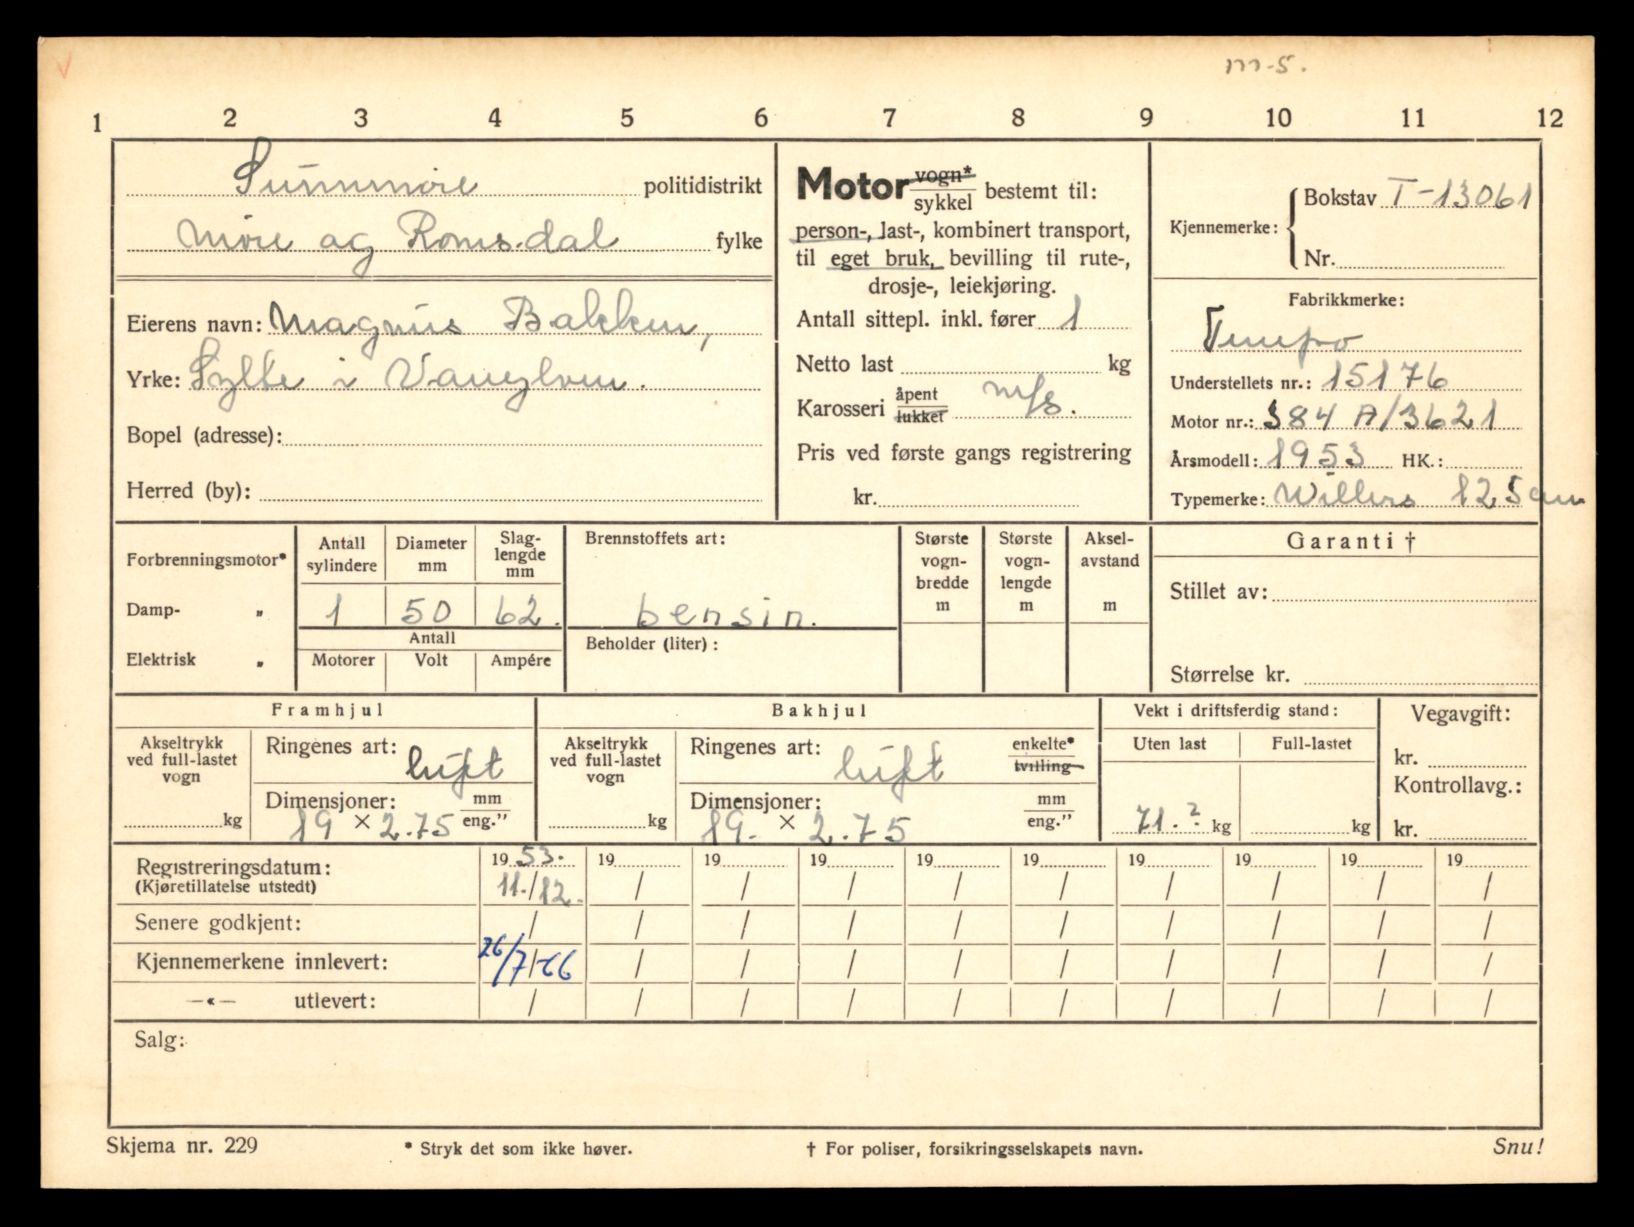 m-5.
1 2 3 4 5 6 7 8 9 10 11 12
Sunnmøre politidistrikt
Møre og Romsdal fylke
Eierens navn: Magnus Bakken,
Yrke: Sylte i Vanylven.
Bopel (adresse):
Herred (by):
Motor vogn* sykkel bestemt til:
person-, last-, kombinert transport,
til eget bruk, bevilling til rute-,
drosje-, leiekjøring.
Antall sittepl. inkl. fører 1
Netto last kg
Karosseri åpent lukket m/s.
Pris ved første gangs registrering
kr.
Kjennemerke: Bokstav T-13061
Nr.
Fabrikkmerke:
Tempo
Understellets nr.: 15176
Motor nr.: S84 A/3621
Årsmodell: 1953 HK.:
Typemerke: Willers 125 cm
Forbrenningsmotor*
Damp- „
Elektrisk „
Antall sylindere Diameter mm Slag-lengde mm
1 50 62.
Antall
Motorer Volt Ampére
Brennstoffets art:
bensin.
Beholder (liter):
Største vogn-bredde m
Største vogn-lengde m
Aksel-avstand m
Garanti †
Stillet av:
Størrelse kr.
Framhjul
Akseltrykk ved full-lastet vogn
kg
Ringenes art: luft
Dimensjoner: mm eng."
19 × 2.75
Bakhjul
Akseltrykk ved full-lastet vogn
kg
Ringenes art: luft enkelte* tvilling
Dimensjoner: mm eng."
19. × 2.75
Vekt i driftsferdig stand:
Uten last Full-lastet
71.? kg kg
Vegavgift:
kr.
Kontrollavg.:
kr.
Registreringsdatum: 1953. 19 19 19 19 19 19 19 19 19
(Kjøretillatelse utstedt) 11./12. / / / / / / / / /
Senere godkjent: / / / / / / / / / /
Kjennemerkene innlevert: 26/7-66 / / / / / / / / /
—«— utlevert: / / / / / / / / / /
Salg:
Skjema nr. 229 * Stryk det som ikke høver. † For poliser, forsikringsselskapets navn. Snu!